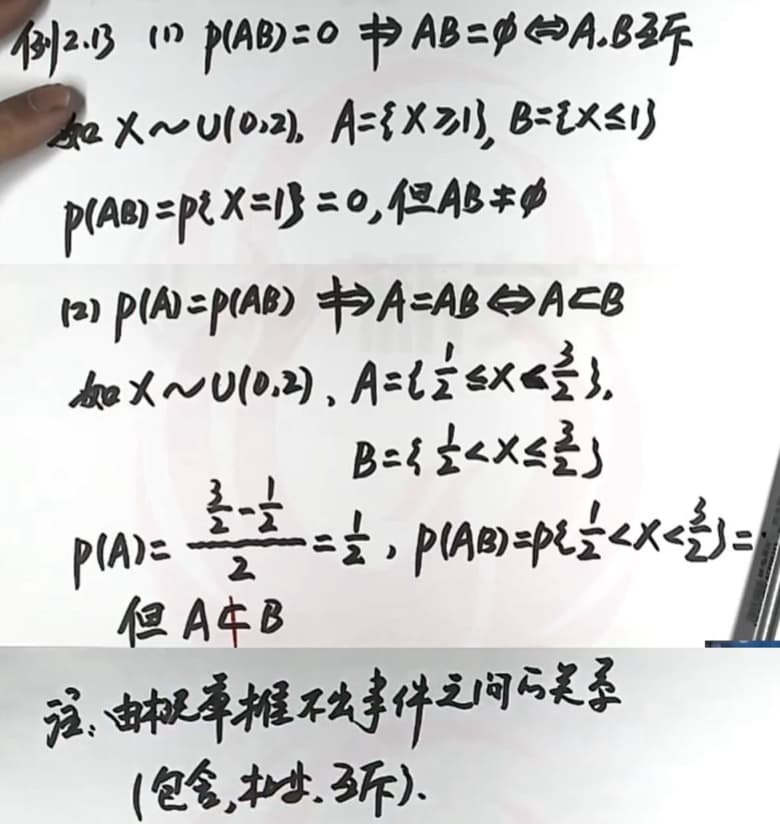 例2.13 (1) P(AB)=0 ⇏ AB=φ⇔A.B互斥
如 X~U(0,2), A={X≥1}, B={X≤1}
P(AB)=P{X=1}=0,但AB≠φ
(2) P(A)=P(AB) ⇏ A=AB⇔A⊂B
如 X~U(0,2), A={1/2≤X<3/2},
B={1/2<X≤3/2}
P(A)=(3/2-1/2)/2=1/2, P(AB)=P{1/2<X<3/2}=
但 A⊄B
注:由概率推不出事件之间的关系
(包含,相等.互斥).